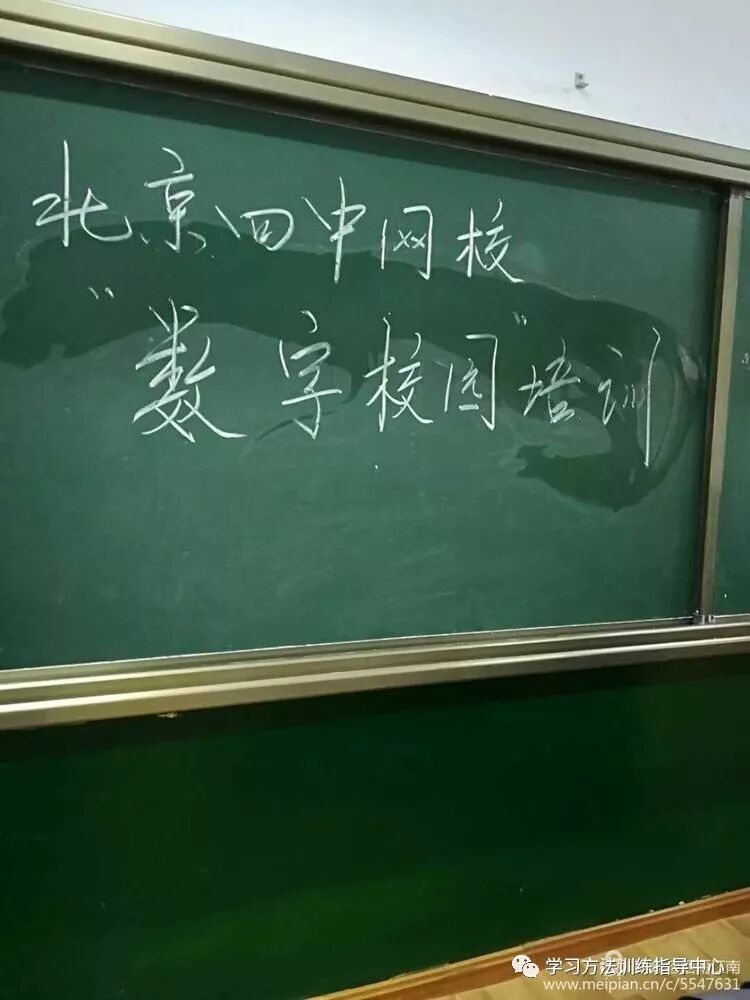 北京四中网校
"数字校园"培训
学习方法训练指导中心
www.meipian.cn/c/5547631